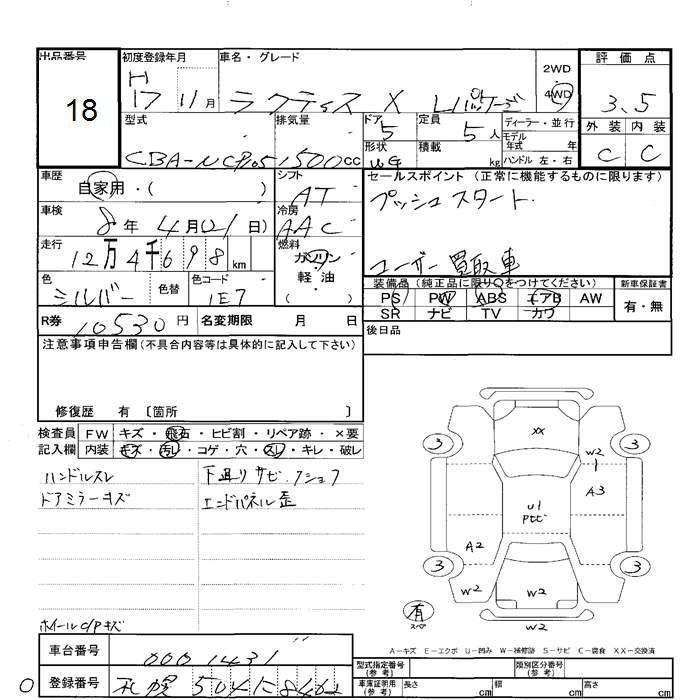 出品番号 初度登録年月 車名・グレード 2WD 評価点
18 H 17 11月 ラクティス X Lパッケージ 4WD 3.5
型式 排気量 ドア 5 定員 5人 ディーラー・並行 外装 内装
モデル年式 年
CBA-NCP105 1500cc 形状 WG 積載 kg ハンドル 左・右 C C
車歴 自家用・( ) シフト AT セールスポイント (正常に機能するものに限ります)
プッシュスタート
車検 8年4月(21日) 冷房 AAC
走行 12万4千698km 燃料 ガソリン 軽油 ( )
ユーザー買取車
色 シルバー 色替 色コード 1E7
装備品(純正品に限り○をつけてください) 新車保証書
PS PW ABS エアB AW 有・無
SR ナビ TV カワ
R券 10530円 名変期限 月 日
後日品
注意事項申告欄(不具合内容等は具体的に記入して下さい)
修復歴 有 〔箇所 〕
検査員 FW キズ・飛石・ヒビ割・リペア跡・×要
記入欄 内装 キズ・汚レ・コゲ・穴・スレ・キレ・破レ
ハンドルスレ 下廻りサビ・クショフ
ドアミラーキズ エンドパネル歪
ホイールC/Pキズ
XX
3 3
W2
A3
U1
A2
3 3
W2 W2 W2
有 スペア
W2
A-キズ E-エクボ U-凹み W-補修跡 S-サビ C-腐食 XX-交換済
車台番号 0001431
型式指定番号(参考) 類別区分番号(参考)
登録番号 札幌 504
車庫証明用(参考) 長さ cm 幅 cm 高さ cm